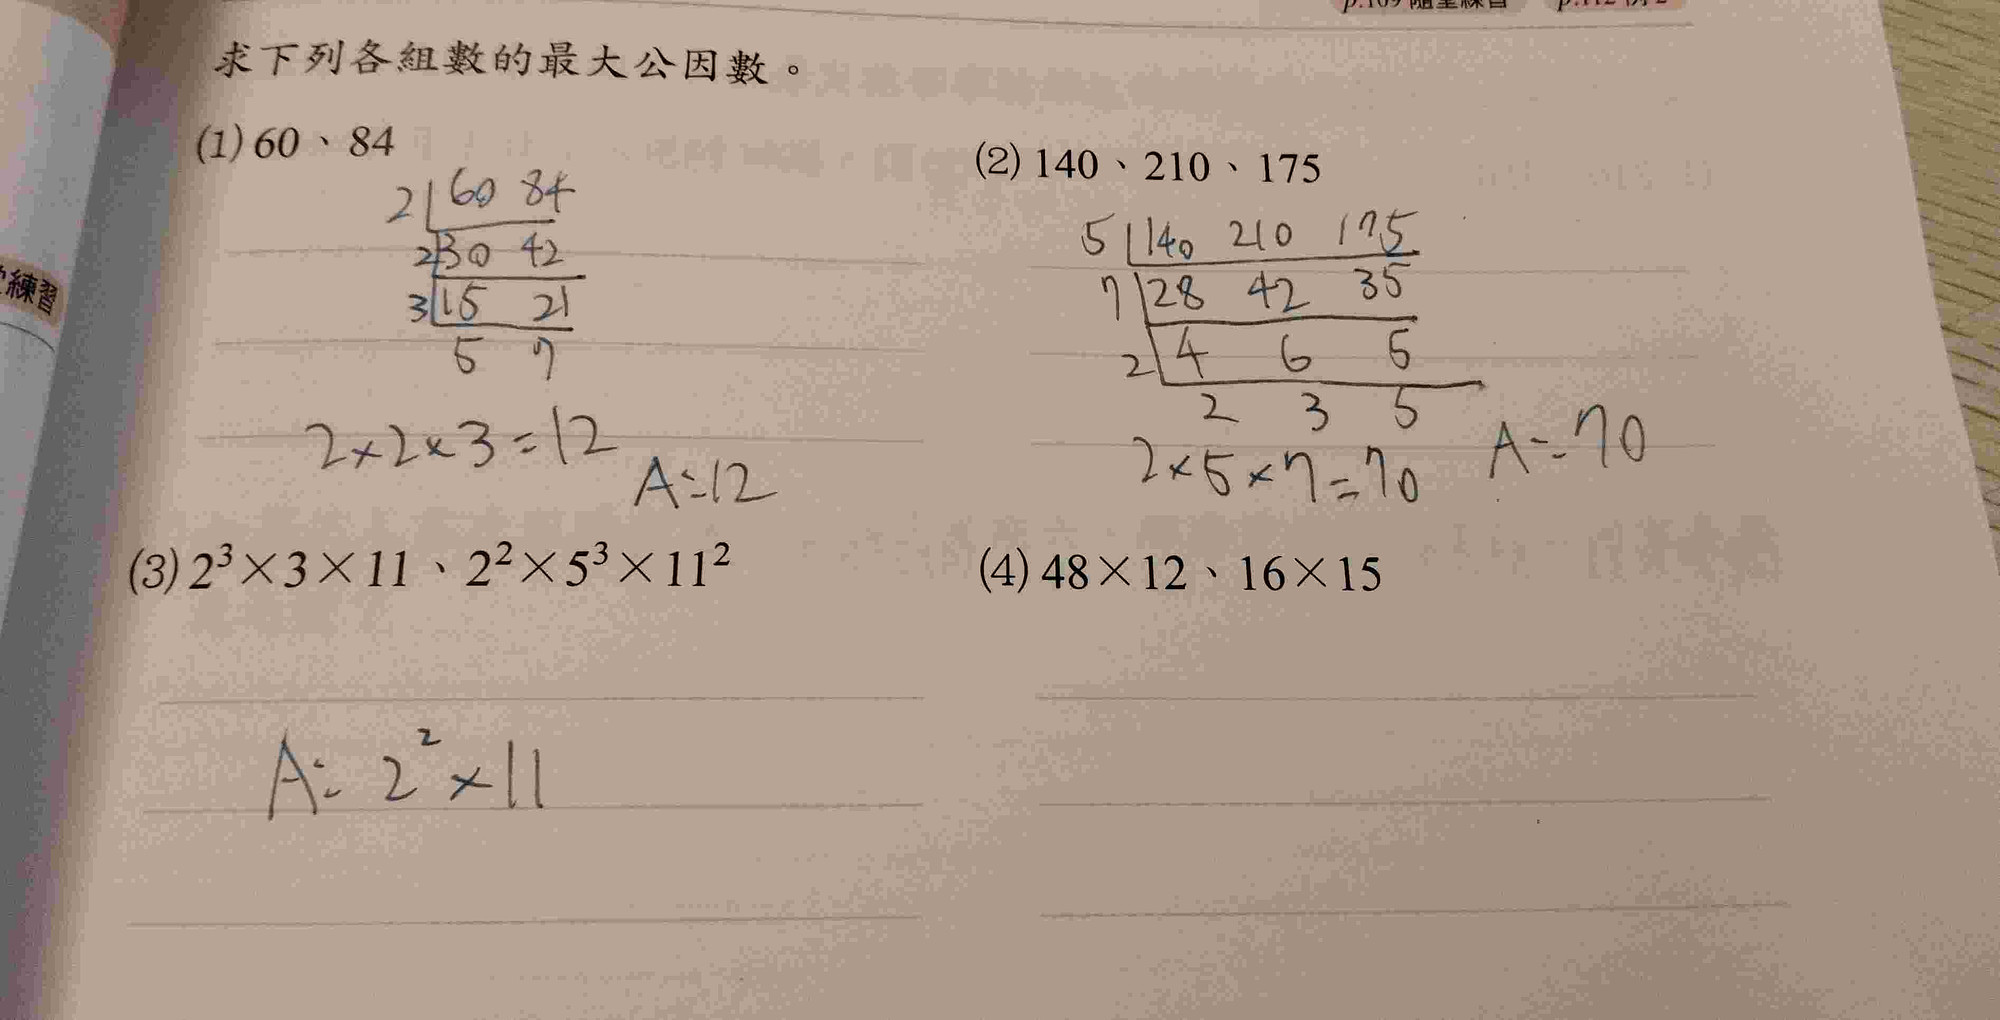 p.109 隨堂練習 p.112 例2
求下列各組數的最大公因數。
(1) 60、84
2 60 84
2 30 42
3 15 21
5 7
2×2×3=12
A:12
(2) 140、210、175
5 140 210 175
7 28 42 35
2 4 6 5
2 3 5
2×5×7=70
A:70
(3) 2³×3×11、2²×5³×11²
A: 2²×11
(4) 48×12、16×15
練習